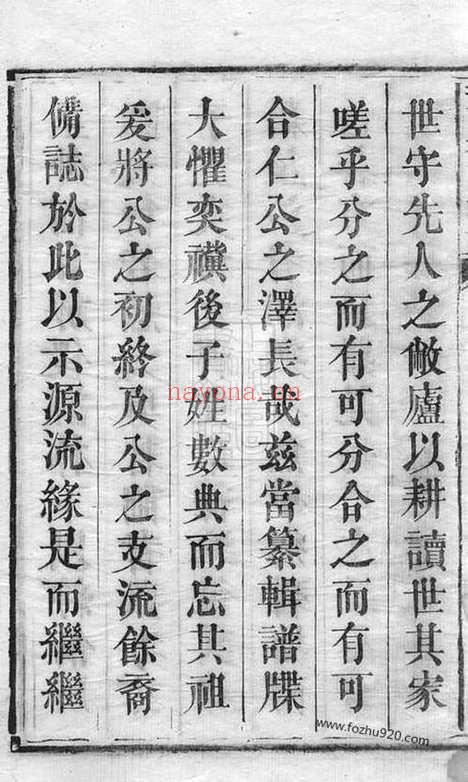 世守先人之敝廬以耕讀世其家
嗟乎分之而有可分合之而有可
合仁公之澤長哉茲當纂輯譜牒
大懼奕禩後子姓數典而忘其祖
爰將公之初終及公之支流餘裔
備誌於此以示源流緣是而繼繼
nayona.cn
www.fozhu920.com